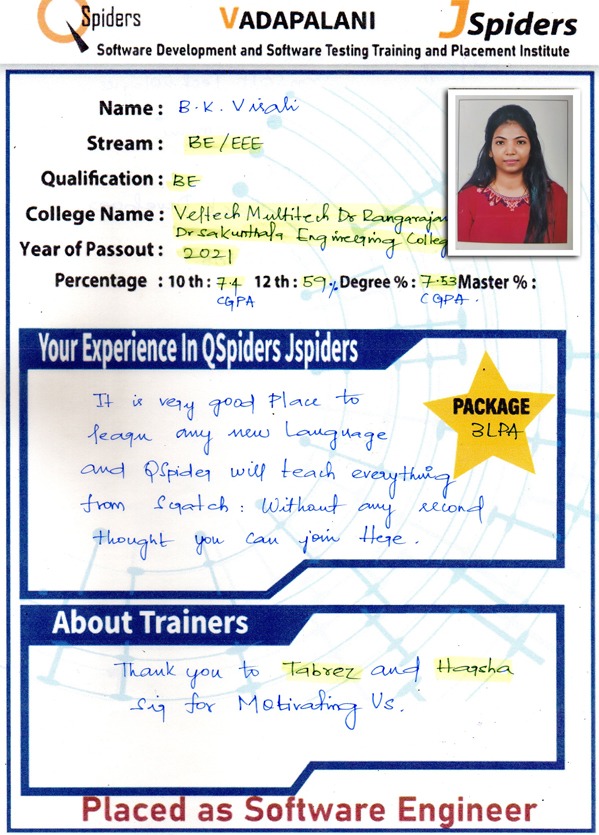 QSpiders VADAPALANI JSpiders
Software Development and Software Testing Training and Placement Institute
Name : B.K. Visali
Stream : BE/EEE
Qualification : BE
College Name : Veltech Multitech Dr Rangarajan
Dr Sakunthala Engineering Colleg
Year of Passout : 2021
Percentage : 10 th : 7.4 CGPA 12 th : 59% Degree % : 7.53 CGPA. Master % :
Your Experience In QSpiders Jspiders
PACKAGE
3LPA
It is very good Place to
learn any new Language
and QSpider will teach everything
from Scratch : Without any second
thought you can join Here .
About Trainers
Thank you to Tabrez and Harsha
Sir for Motivating Us.
Placed as Software Engineer